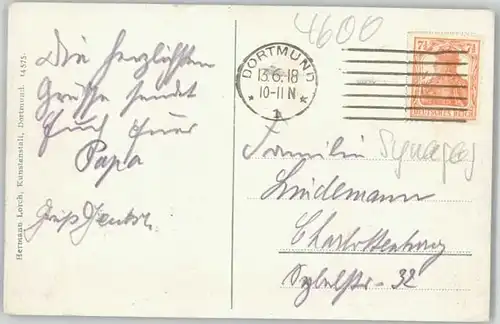 4600
DORTMUND
13.6.18
10-11 N
* 1 *
7½ 7½
DEUTSCHES REICH
Die herzlichsten
Grüße sendet
Euch Euer
Papa
Gruß
Familie
Synagog
Lindemann
Charlottenburg
Sybelstr. 32
Hermann Lorch, Kunstanstalt, Dortmund. 14575.